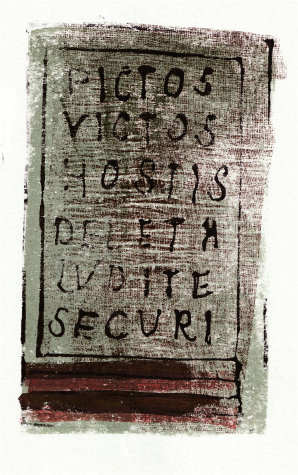 PICTOS
VICTOS
HOSTIS
DELETA
LVDITE
SECURI